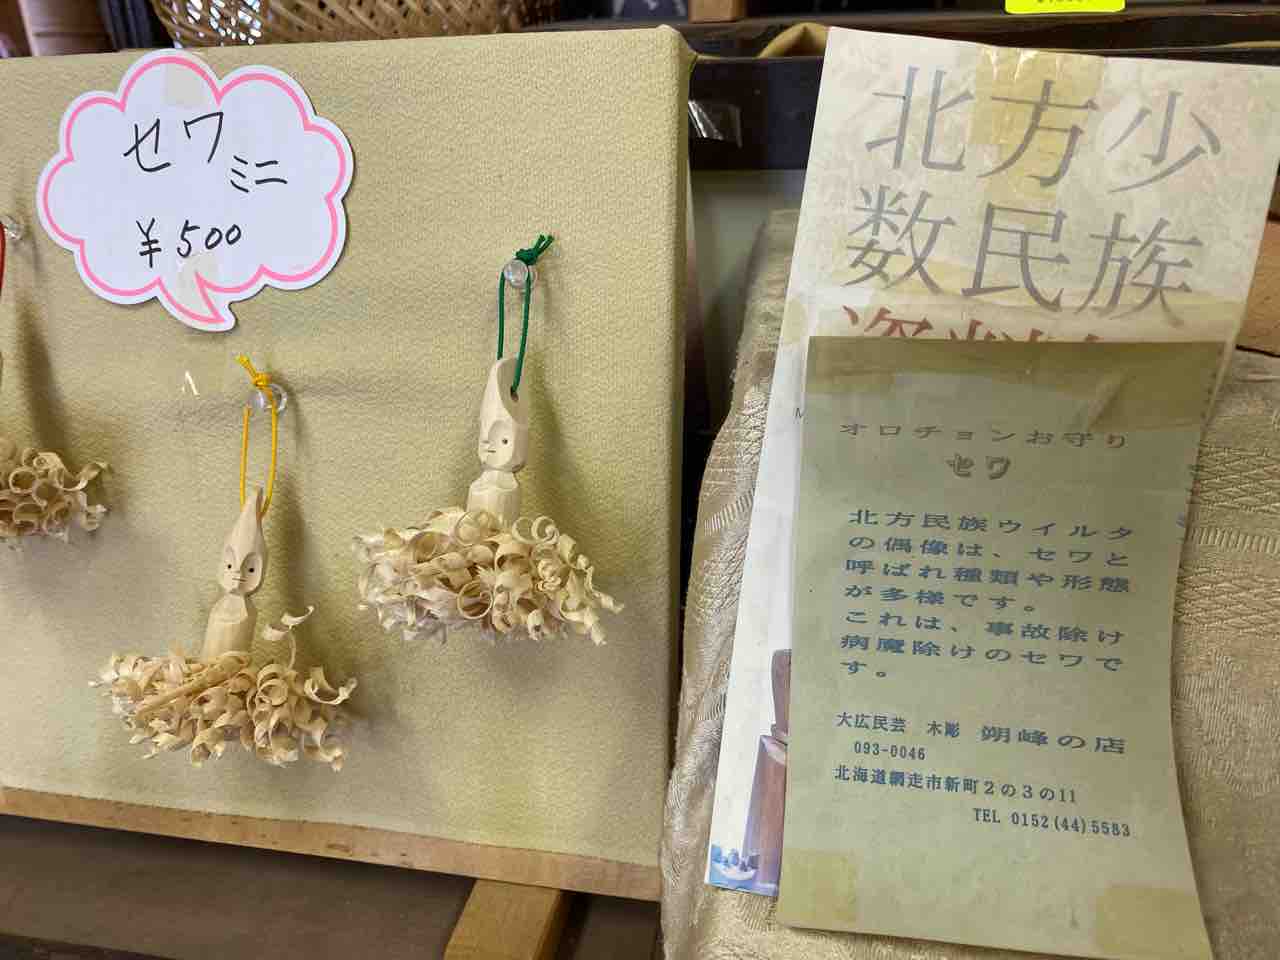 セワ
ミニ
¥500
北方少
数民族
オロチョンお守り
セワ
北方民族ウイルタ
の偶像は、セワと
呼ばれ種類や形態
が多様です。
これは、事故除け
病魔除けのセワで
す。
大広民芸 木彫 朔峰の店
093-0046
北海道網走市新町2の3の11
TEL 0152(44)5583